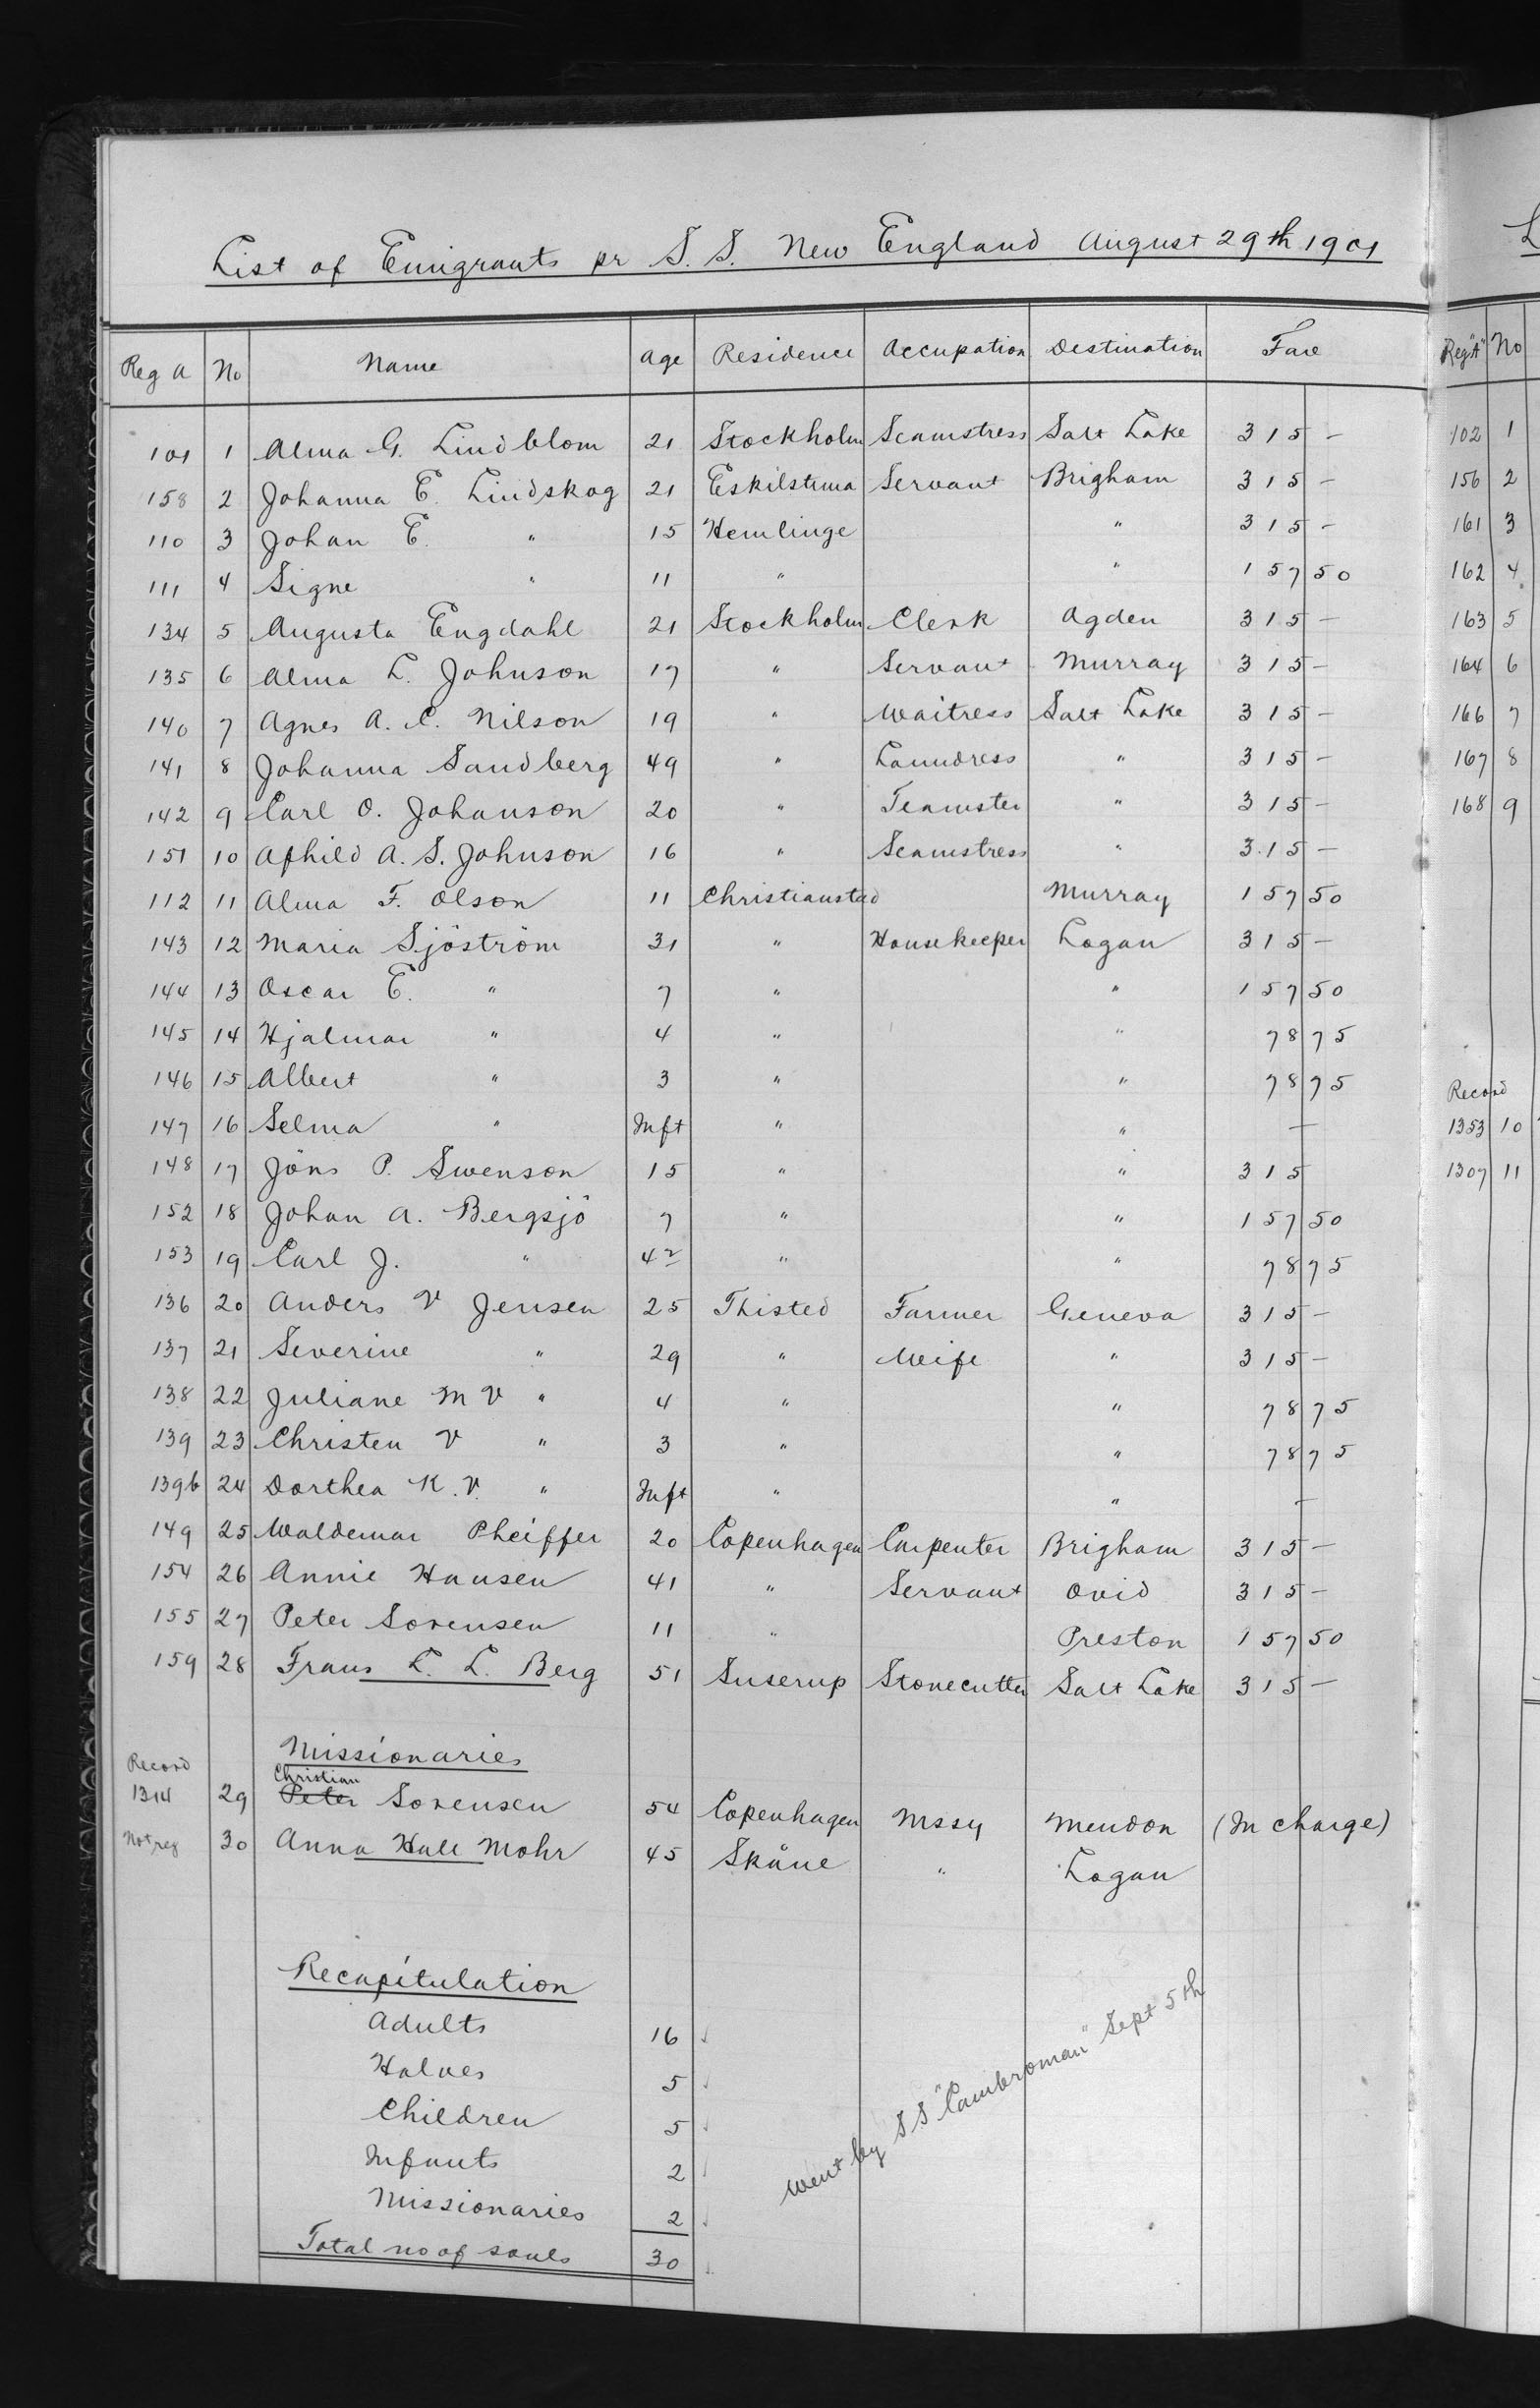 List of Emigrants pr S. S. New England August 29th 1901
Reg A No Name Age Residence Occupation Destination Fare
101 1 Alma G. Lindblom 21 Stockholm Seamstress Salt Lake 315 -
158 2 Johanna E. Lindskog 21 Eskilstuna Servant Brigham 315 -
110 3 Johan E. " 15 Hemlinge " 315 -
111 4 Signe " 11 " " 157 50
134 5 Augusta Engdahl 21 Stockholm Clerk Ogden 315 -
135 6 Alma L. Johnson 17 " Servant Murray 315 -
140 7 Agnes A. C. Nilson 19 " Waitress Salt Lake 315 -
141 8 Johanna Sandberg 49 " Laundress " 315 -
142 9 Carl O. Johanson 20 " Teamster " 315 -
151 10 A. S. Johnson 16 " Seamstress " 315 -
112 11 Alma F. Olson 11 Christianstad Murray 157 50
143 12 Maria Sjöström 31 " Housekeeper Logan 315 -
144 13 Oscar E. " 7 " " 157 50
145 14 Hjalmar " 4 " " 78 75
146 15 Albert " 3 " " 78 75
147 16 Selma " Inft " " -
148 17 Jöns P. Swenson 15 " " 315
152 18 Johan A. Bergsjö 7 " " 157 50
153 19 Carl J. " 4 " " 78 75
136 20 Anders V Jensen 25 Thisted Farmer Geneva 315 -
137 21 Severine " 29 " Weife " 315 -
138 22 Juliane M V " 4 " " 78 75
139 23 Christen V " 3 " " 78 75
139b 24 Dorthea K. V. " Inft " " -
149 25 Waldemar Pheiffer 20 Copenhagen Carpenter Brigham 315 -
154 26 Annie Hansen 41 " Servant Ovid 315 -
155 27 Peter Sorensen 11 " Preston 157 50
159 28 Frans L. L. Berg 51 Suserup Stonecutter Salt Lake 315 -
Missionaries
Record
Christian
1314 29 Peter Sorensen 54 Copenhagen Mssy Mendon (In charge)
Not reg 30 Anna Hall Mohr 45 Skåne " Logan
Recapitulation
Adults 16
Halves 5
Children 5
Infants 2
Missionaries 2
Total no of souls 30
Went by S S "Cambroman" Sept 5th
L
Reg "A" No
102 1
156 2
161 3
162 4
163 5
164 6
166 7
167 8
168 9
Record
1353 10
1307 11